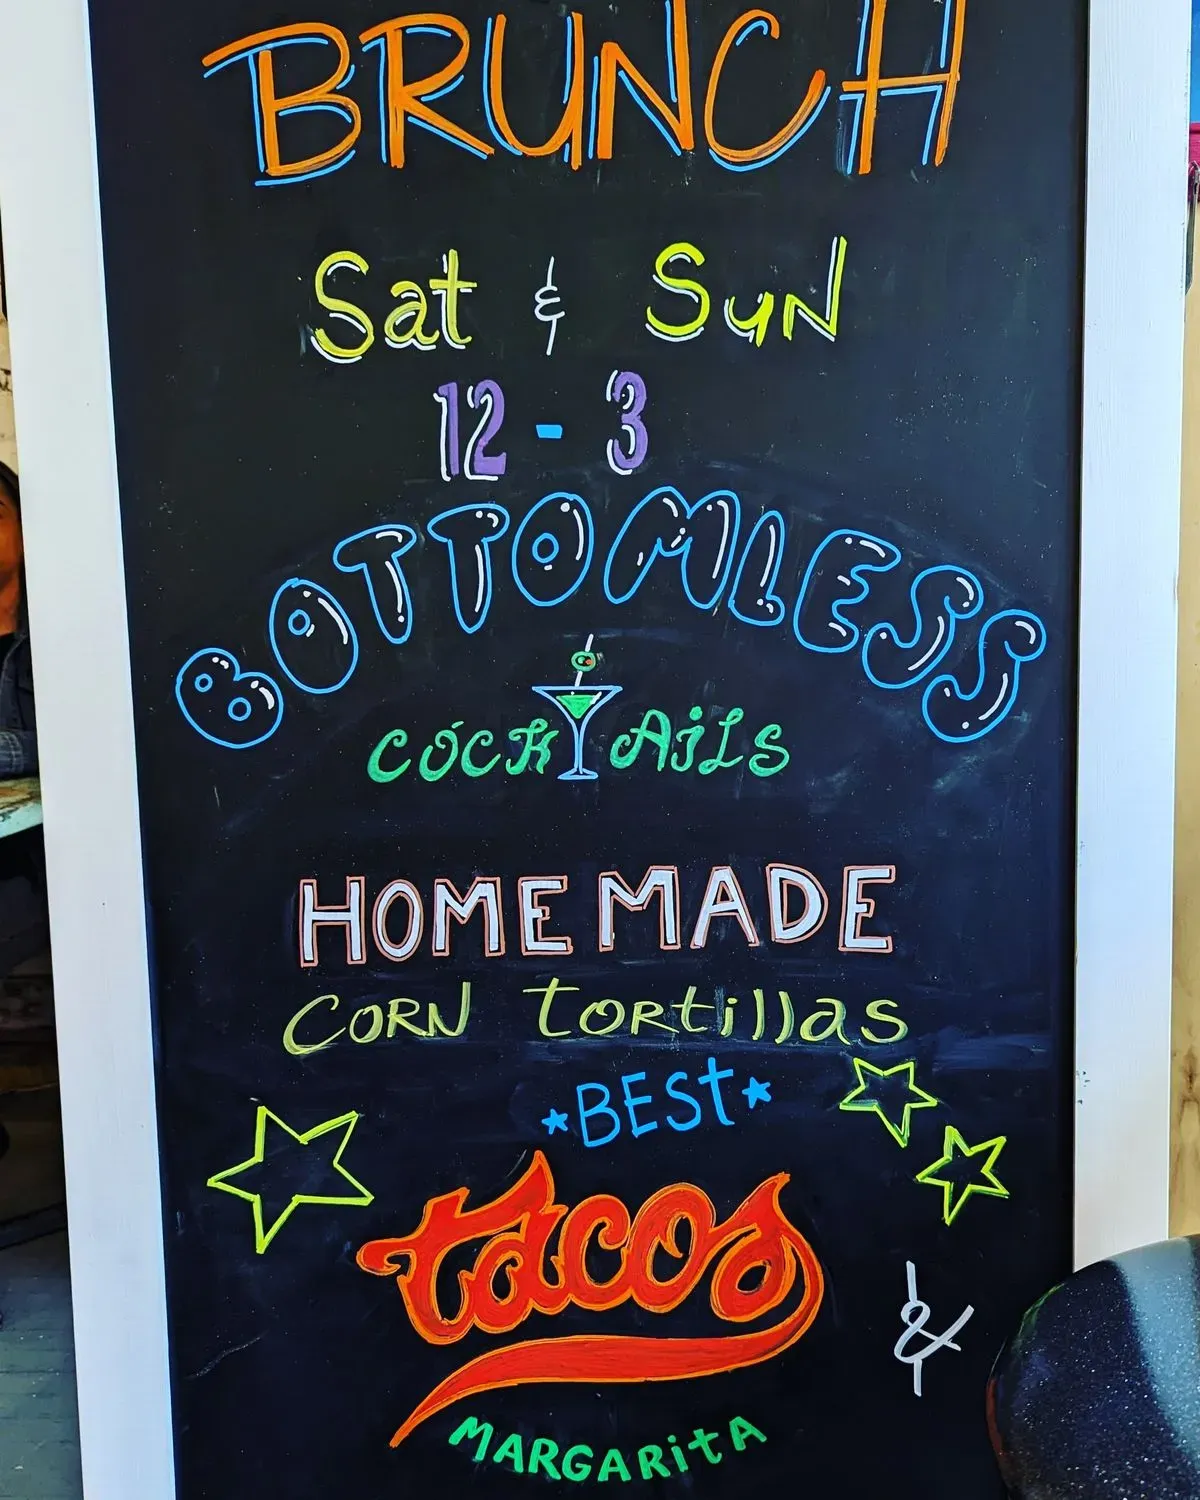 BRUNCH
Sat & Sun
12 - 3
BOTTOMLESS
COCKTAILS
HOMEMADE
CORN TORTILLAS
BEST
tacos
&
MARGARITA